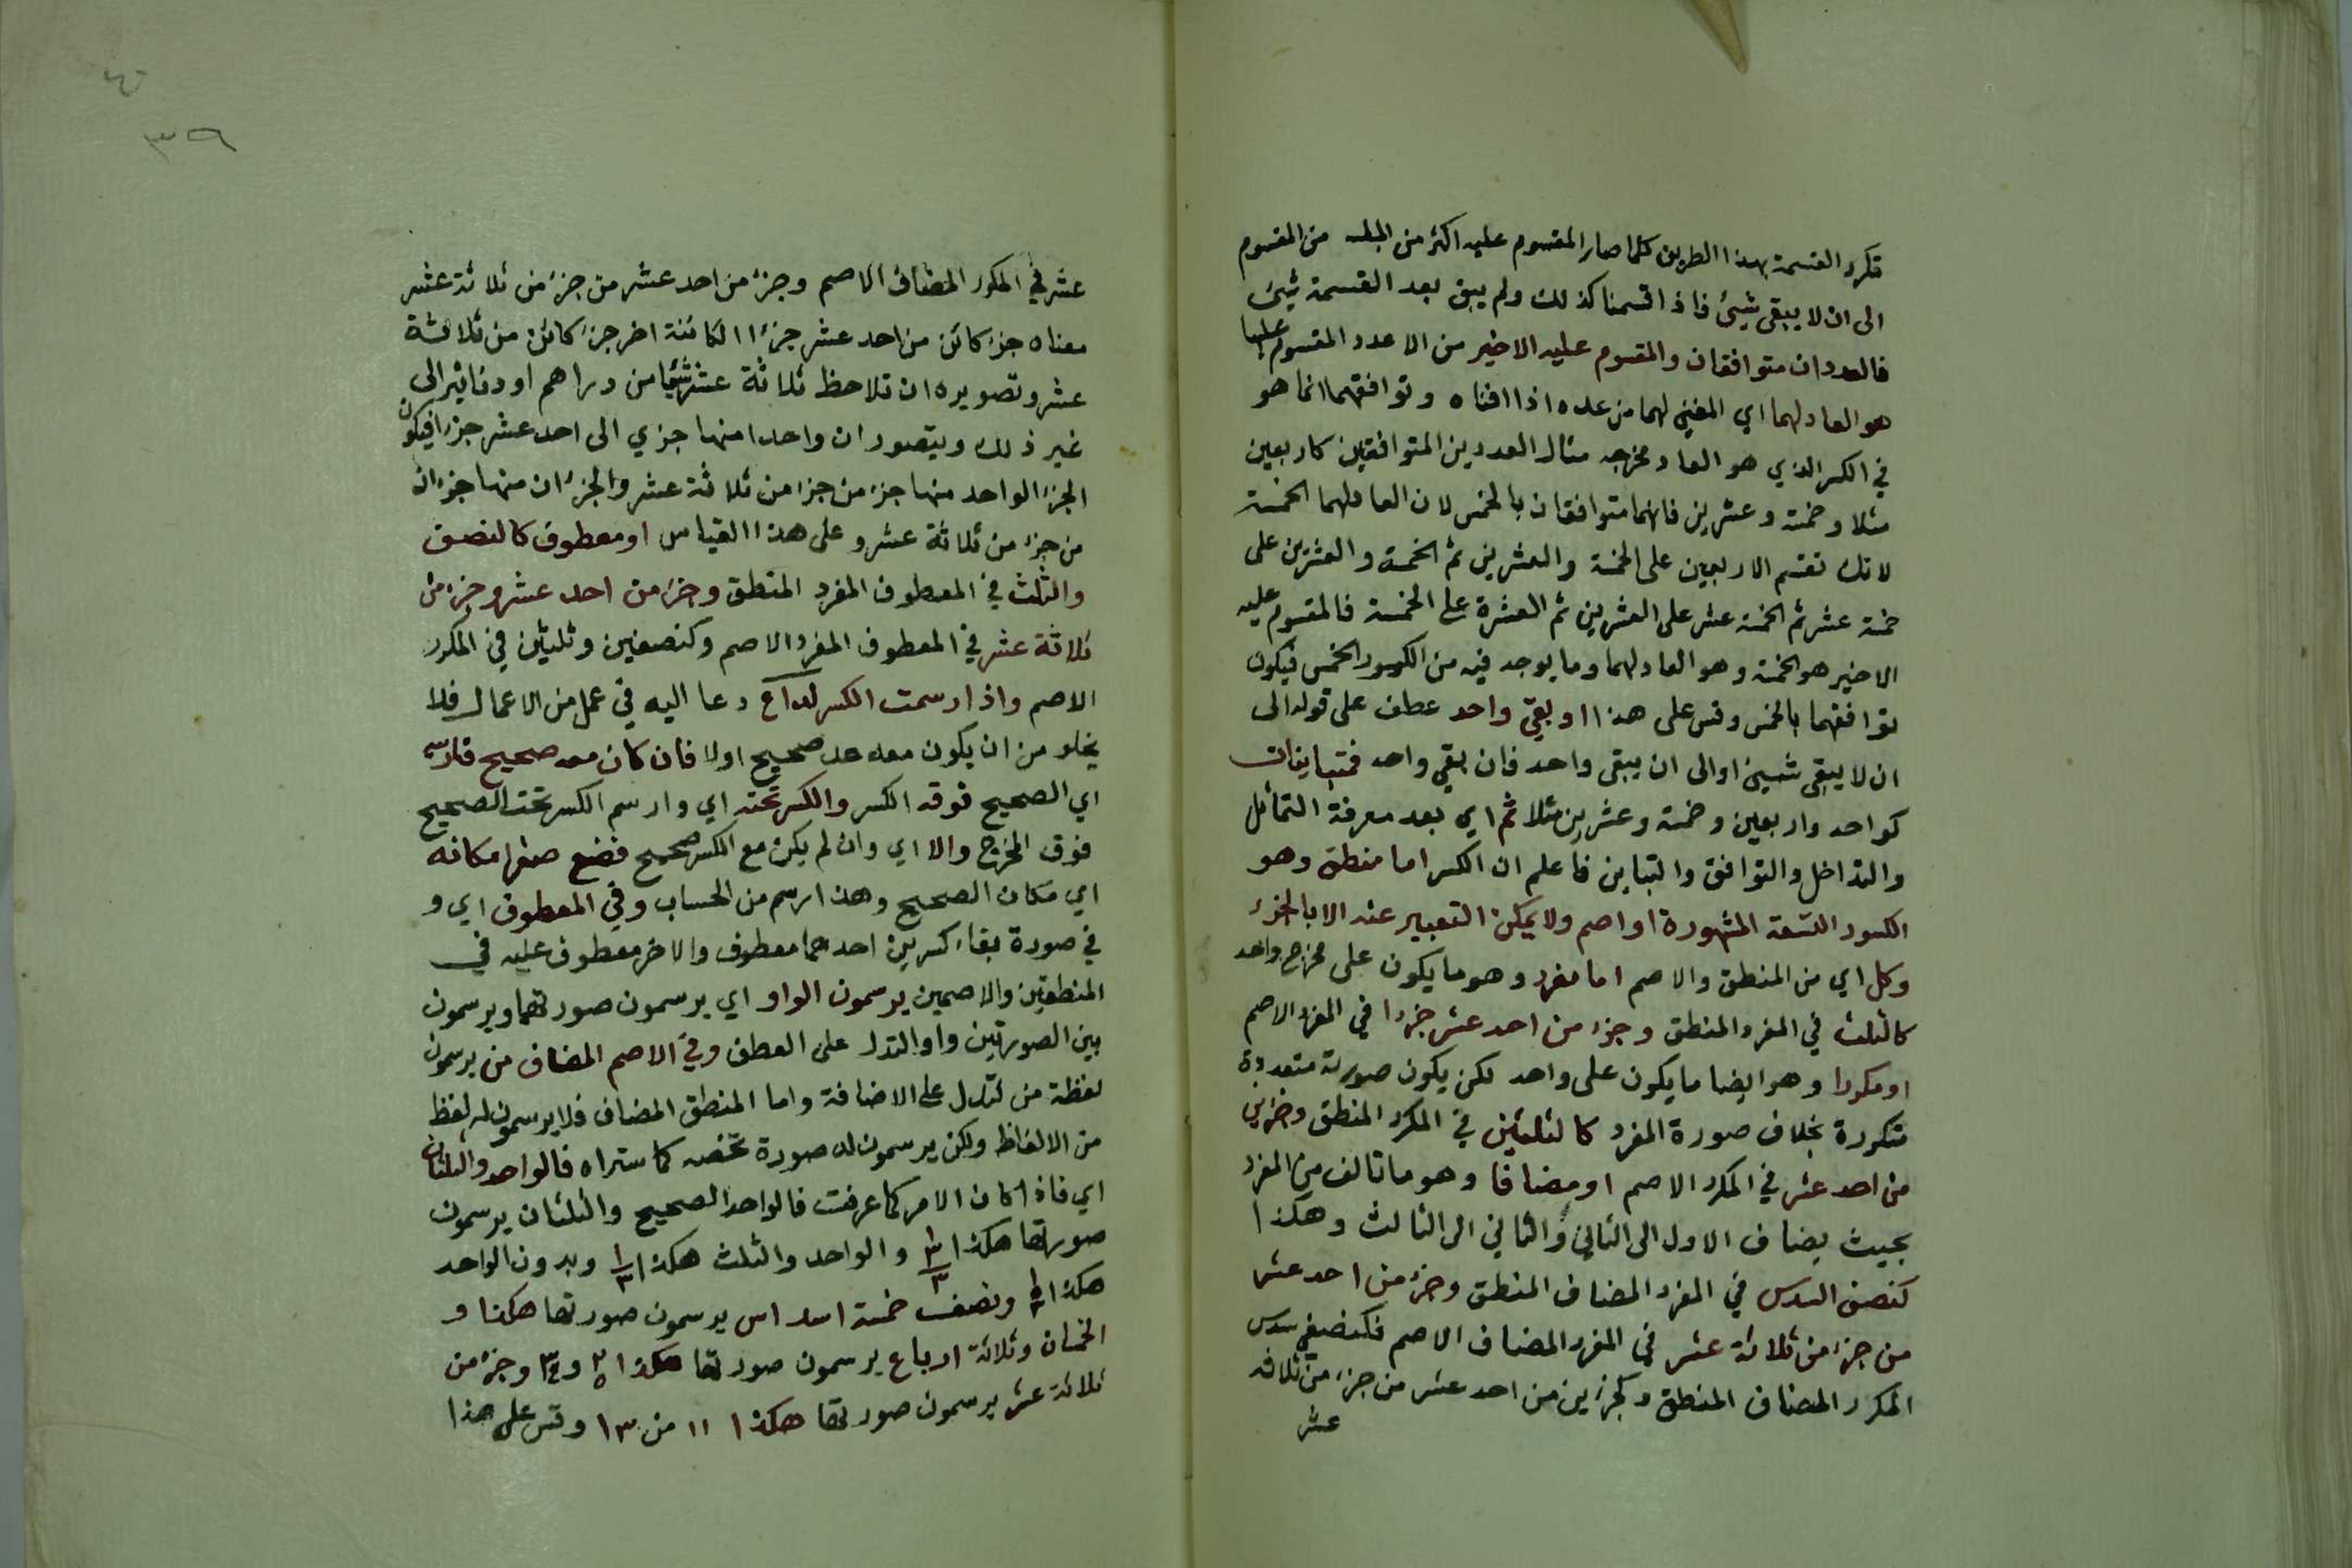 فكرر القسمة بهذا الطريق كلما صار المقسوم عليه اكثر من المقسوم
الى ان لا يبقى شيئ فاذا قسمنا كذلك ولم يبق بعد القسمة شيئ
فالعددان متوافقان والمقسوم عليه الاخير من الاعدد المقسوم عليها
هو العاد لهما اي المفني لهما من عده اذا افناه وتوافقهما انما هو
في الكسر الذي هو العاد مخرجه مثال العددين المتوافقين كاربعين
مثلا وخمسة وعشرين فانهما متوافقان بالخمس لان العاد لهما الخمسة
لانك تقسم الاربعين على الخمسة والعشرين ثم الخمسة والعشرين على
خمسة عشر ثم الخمسة عشر على العشرين ثم العشرة على الخمسة فالمقسوم عليه
الاخير هو الخمسة وهو العاد لهما وما يوجد فيه من الكسور الخمس فيكون
توافقهما بالخمس وقس على هذا او بقي واحد عطف على قوله الى
ان لا يبقى شيئ او الى ان يبقى واحد فان بقي واحد فمتباينان
كواحد واربعين وخمسة وعشرين مثلا ثم اي بعد معرفة التماثل
والتداخل والتوافق والتباين فاعلم ان الكسر اما منطق وهو
الكسور التسعة المشهورة او اصم ولا يمكن التعبير عنه الا بالجزء
وكل اي من المنطق والاصم اما مفرد وهو ما يكون على مخرج واحد
كالثلث في المفرد المنطق وجزء من احد عشر جزءا في المفرد الاصم
او مكررا وهو ايضا ما يكون على واحد لكن يكون صورته متعددة
متكررة بخلاف صورة المفرد كالثلثين في المكرر المنطق وجزءين
من احد عشر في المكرر الاصم او مضافا وهو ما تالف من المفرد
بحيث يضاف الاول الى الثاني والثاني الى الثالث وهكذا
كنصف السدس في المفرد المضاف المنطق وجزء من احد عشر
من جزء من ثلاثة عشر في المفرد المضاف الاصم فكنصفي سدس
المكرر المضاف المنطق وكجزءين من احد عشر من جزء من ثلاثة
عشر
٤٠
٣٩
عشر في المكرر المضاف الاصم وجزء من احد عشر من جزء من ثلاثة عشر
معناه جزء كائن من احد عشر جزءا الكائنة اخر جزء كائن من ثلاثة
عشر وتصويره ان تلاحظ ثلاثة عشر شيئا من دراهم او دنانير الى
غير ذلك ويتصور ان واحدا منها جزي الى احد عشر جزءا فيكون
الجزء الواحد منها جزء من جزء من ثلاثة عشر والجزءان منها جزءان
من جزء من ثلاثة عشر وعلى هذا القياس او معطوف كالنصف
والثلث في المعطوف المفرد المنطق وجزء من احد عشر وجزء من
ثلاثة عشر في المعطوف المفرد الاصم وكنصفين وثلثين في المكرر
الاصم واذا رسمت الكسر لداع دعا اليه في عمل من الاعمال فلا
يخلو من ان يكون معه عدد صحيح اولا فان كان معه صحيح فارسمه
اي الصحيح فوقه الكسر والكسر تحته اي وارسم الكسر تحت الصحيح
فوق المخرج والا اي وان لم يكن مع الكسر صحيح فضع صفرا مكانه
اي مكان الصحيح وهذا رسم من الحساب وفي المعطوف اي و
في صورة بقاء كسرين احدهما معطوف والاخر معطوف عليه في
المنطقين والاصمين يرسمون الواو اي يرسمون صورتهما ويرسمون
بين الصورتين واو التدل على العطف وفي الاصم المضاف من يرسمون
لفظة من لتدل على الاضافة واما المنطق المضاف فلا يرسمون له لفظ
من الالفاظ ولكن يرسمون له صورة تخصه كما ستراه فالواحد والثلثان
اي فاذا كان الامر كما عرفت فالواحد الصحيح والثلثان يرسمون
صورتها هكذا ١ ٢ ٣ والواحد والثلث هكذا ١ ١ ٣ وبدون الواحد
هكذا ونصف خمسة اسداس يرسمون صورتها هكذا و
الخمسان وثلاثة ارباع يرسمون صورتها هكذا ٢ ٥ و ٣ ٤ وجزء من
ثلاثة عشر يرسمون صورتها هكذا ١١ من ١٣ وقس على هذا